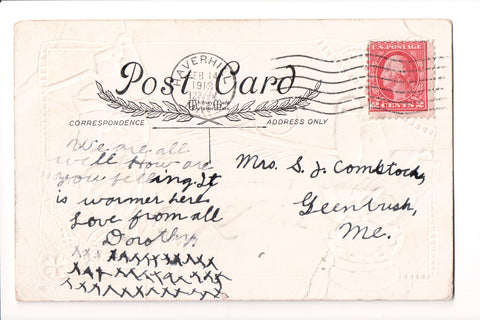 HAVERHILL
FEB 14
1919
U.S. POSTAGE
2 CENTS 2
Post Card
CORRESPONDENCE
ADDRESS ONLY
We are all
well How are
you felling. It
is warmer here
Love from all
Dorothy.
xxxxxxxxx
xxxxxxxxxxx
xxxxxxxxxxxx
Mrs. S. J. Combstock,
Geenbush,
Me.